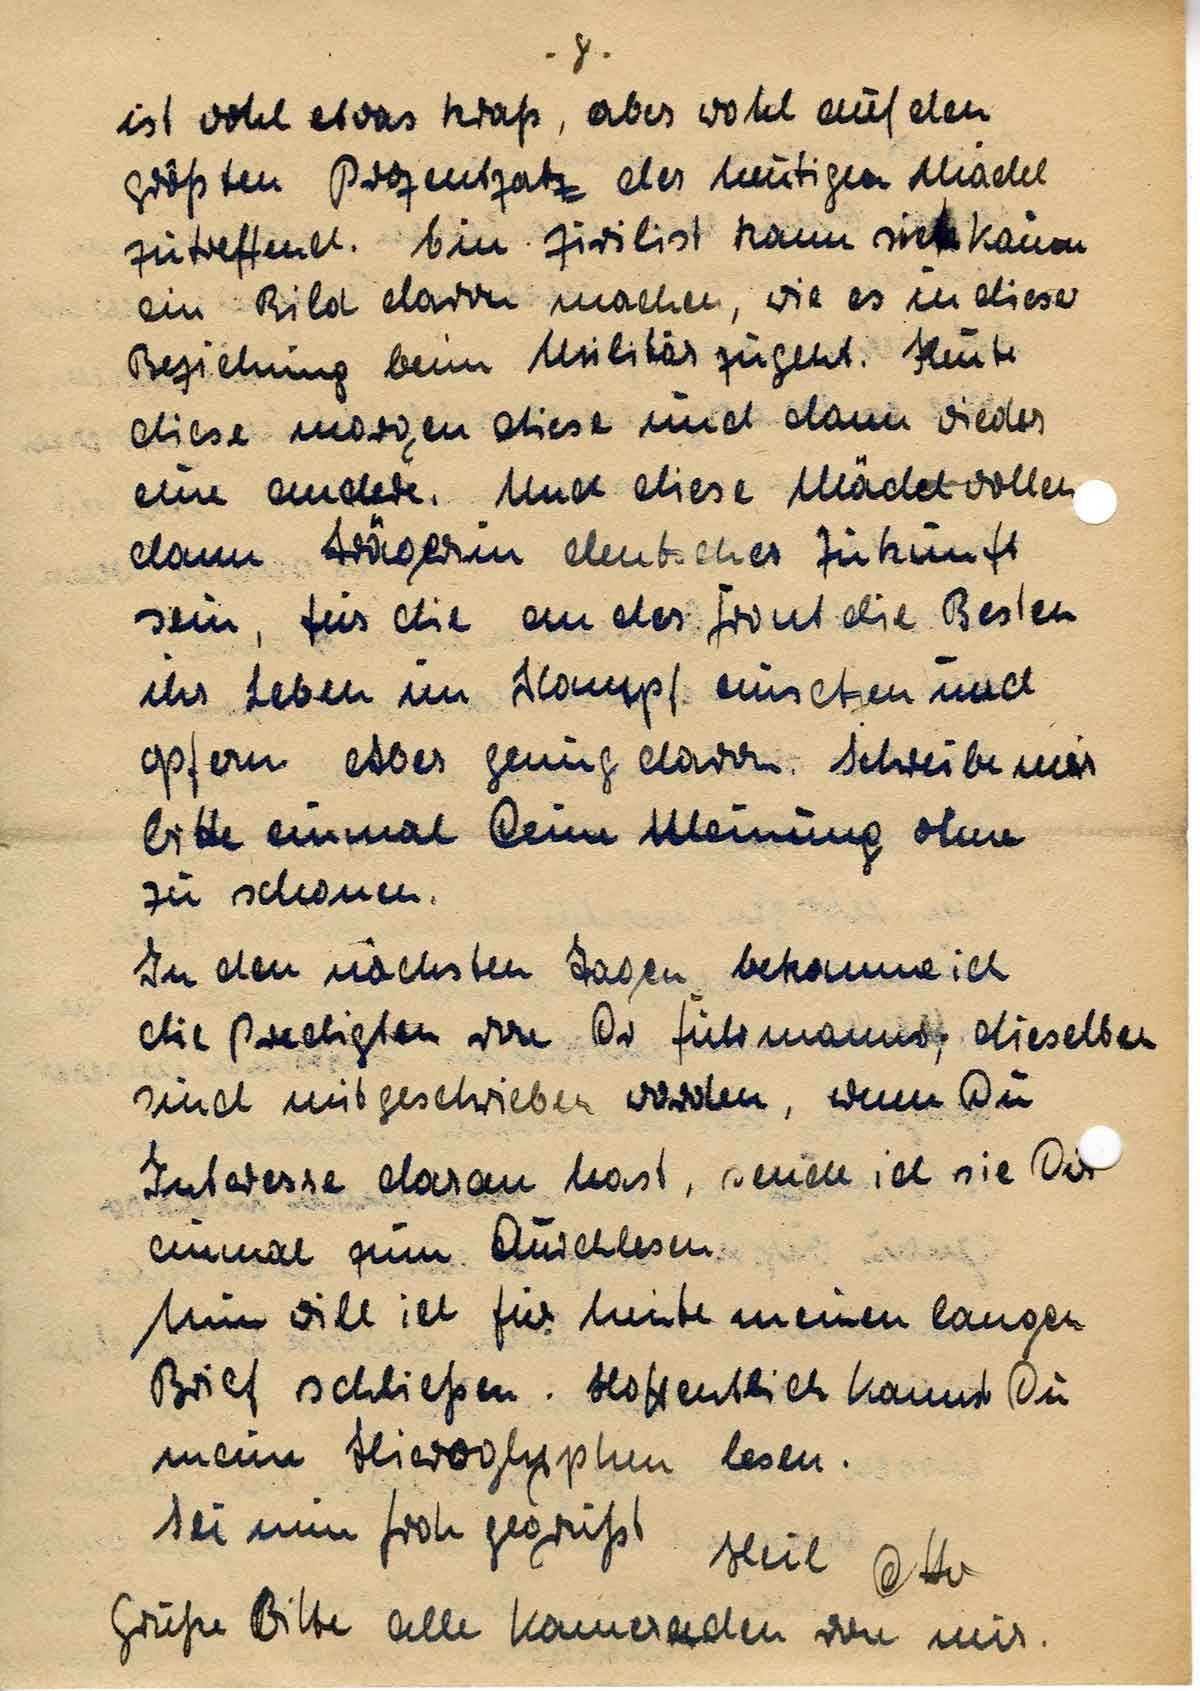 - 8 -
ist wohl etwas kraß, aber wohl auf den
größten Prozentsatz der heutigen Mädel
zutreffend. Ein Zivilist kann sich kaum
ein Bild davon machen, wie es in dieser
Beziehung beim Militär zugeht. Heute
diese morgen diese und dann wieder
eine andere. Und diese Mädel wollen
dann Trägerin deutscher Zukunft
sein, für die an der Front die Besten
ihr Leben im Kampf einsetzen und
opfern. Aber genug davon. Schreibe mir
bitte einmal Deine Meinung ohne
zu schonen.
In den nächsten Tagen bekomme ich
die Predigten von Dr dieselben
sind mitgeschrieben worden, wenn Du
Interesse daran hast, sende ich sie Dir
einmal zum Durchlesen.
Nun will ich für heute meinen langen
Brief schließen. Hoffentlich kannst Du
meine Hieroglyphen lesen.
Sei nun froh gegrüßt
Heil Otto
Grüße Bitte alle Kameraden von mir.